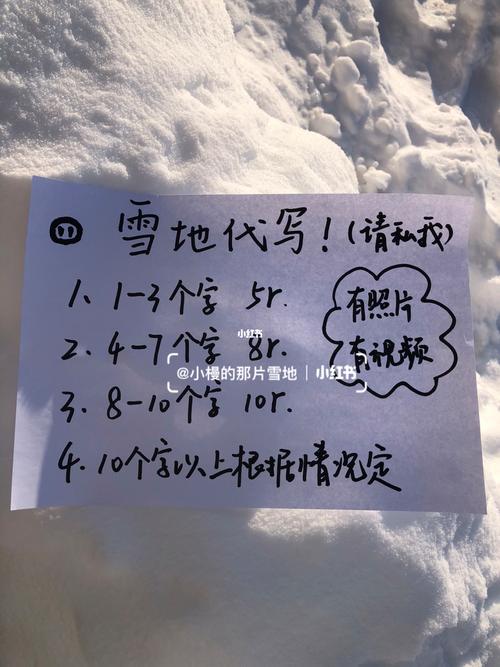 雪地代写！（请私我）
1、1-3个字 5r.
2、4-7个字 8r.
3、8-10个字 10r.
4、10个字以上根据情况定
有照片
有视频
小红书
@小嫚的那片雪地 | 小红书